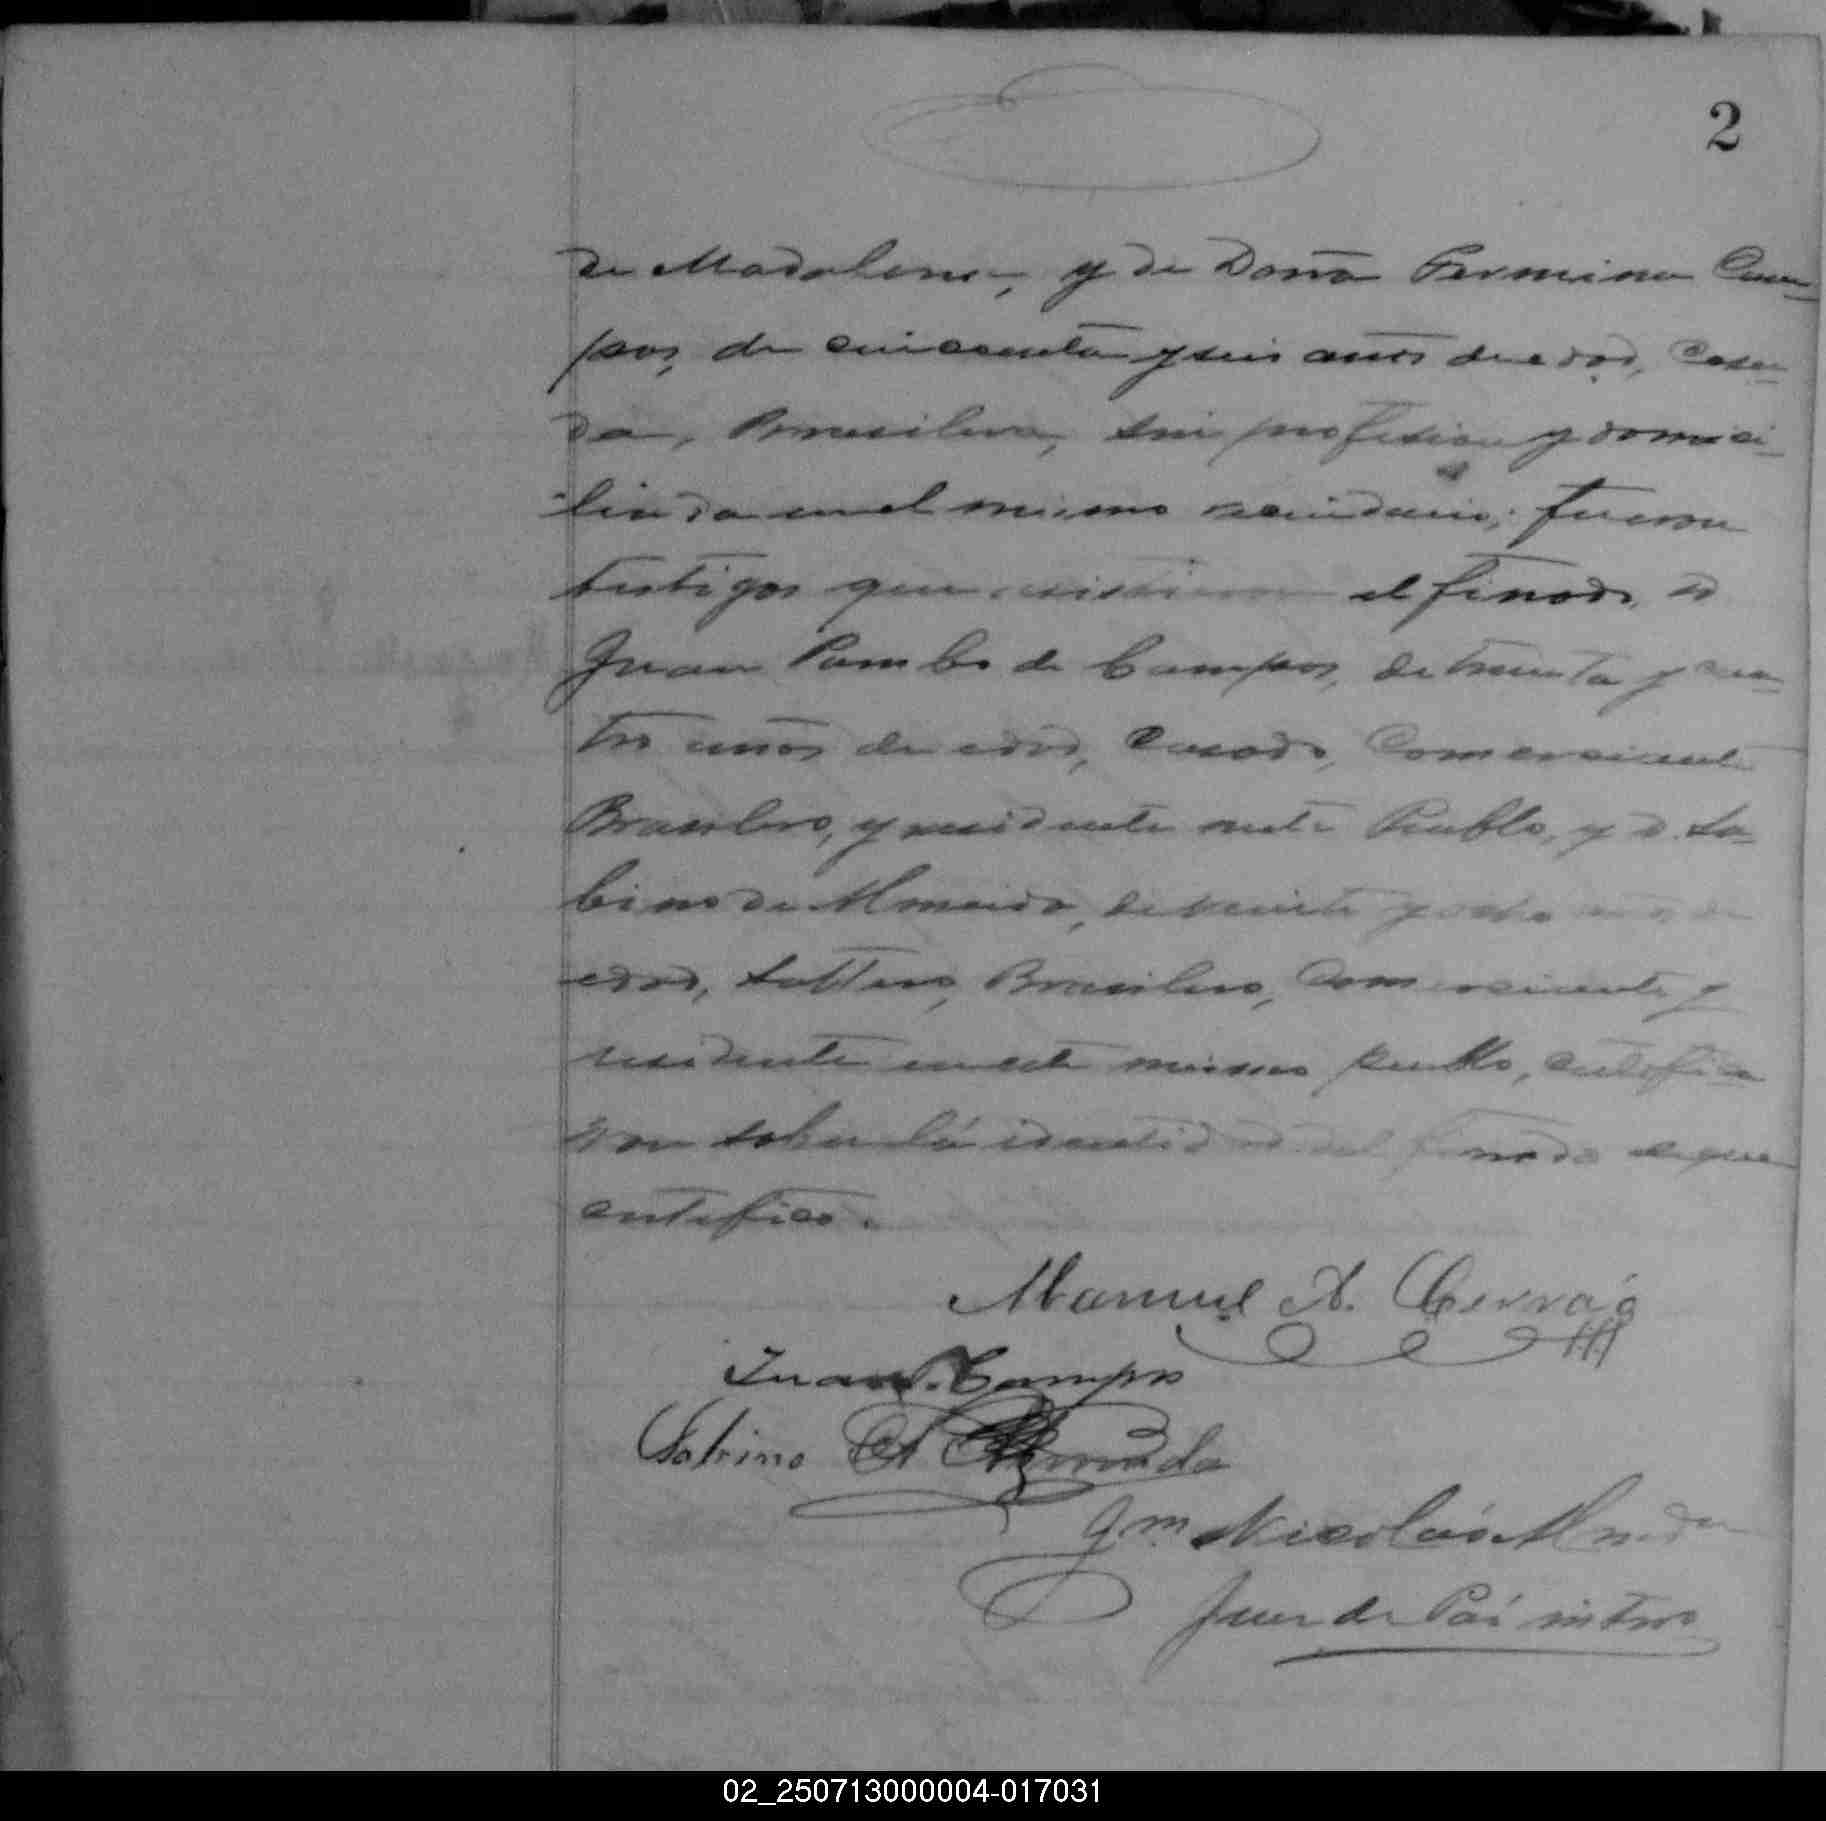 2
de Madalena, y de Doña Fermina Cam-
pos, de cincuenta y seis años de edad, Casa-
da, Brasilera, sin profesion y domici-
liada en el mismo vecindario; fueron
testigos que el finado, D
Juan Pombo de Campos, de treinta y cua-
tro años de edad, Casado, Comerciante
Brasilero, y residente neste Pueblo, y D. Sa-
bino de Almeida, de veinte y ocho años de
edad, Soltero, Brasilero, Comerciante y
residente en este mismo pueblo, certifica
ron sobre la identidad del finado de que
certifico.
Manuel A.
Juan P. Campos
Sabino A. Almeida
Nicolás Almeida
Juez de Paz
02_250713000004-017031